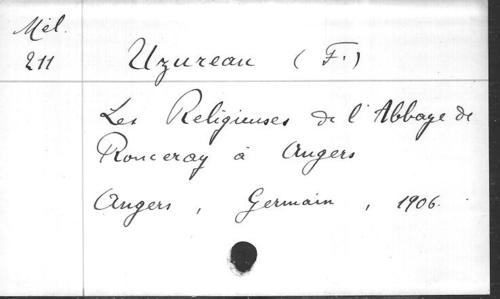 Mél.
211
Uzureau (F.)
Les Religieuses de l'Abbaye de
Ronceray à Angers
Angers, Germain, 1906.